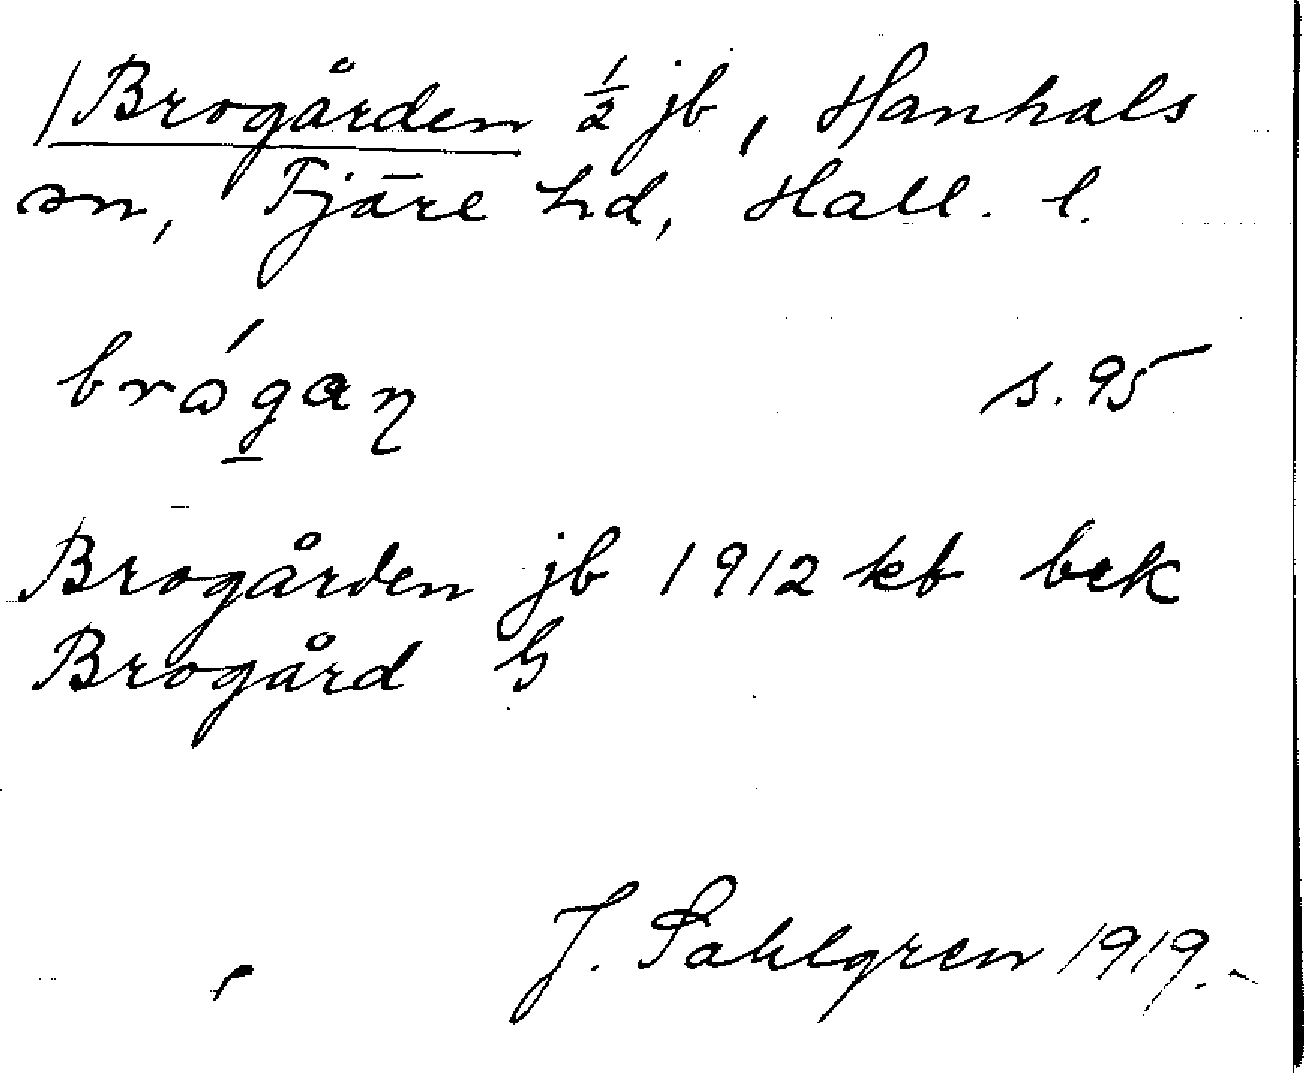 Brogården ½ jb, Hanhals
sn, Fjäre hd, Hall. l.
s. 95
Brogården jb 1912 kb bek
Brogård G
J. Sahlgren 1919.